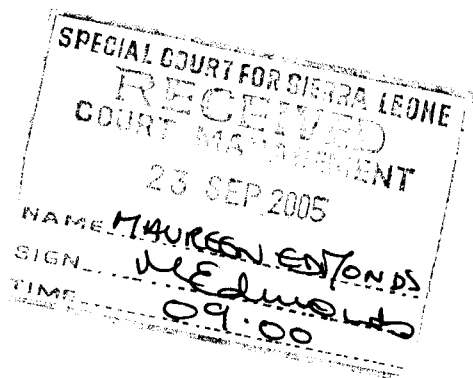 SPECIAL COURT FOR SIERRA LEONE
RECEIVED
COURT MANAGEMENT
23 SEP 2005
NAME MAUREEN EDMONDS
SIGN MEdmonds
TIME 09.00